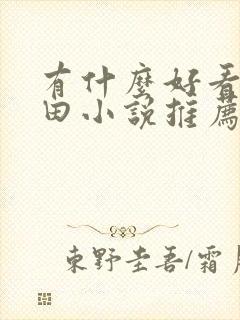 有什麼好看
田小說推薦
東野圭吾/霜月